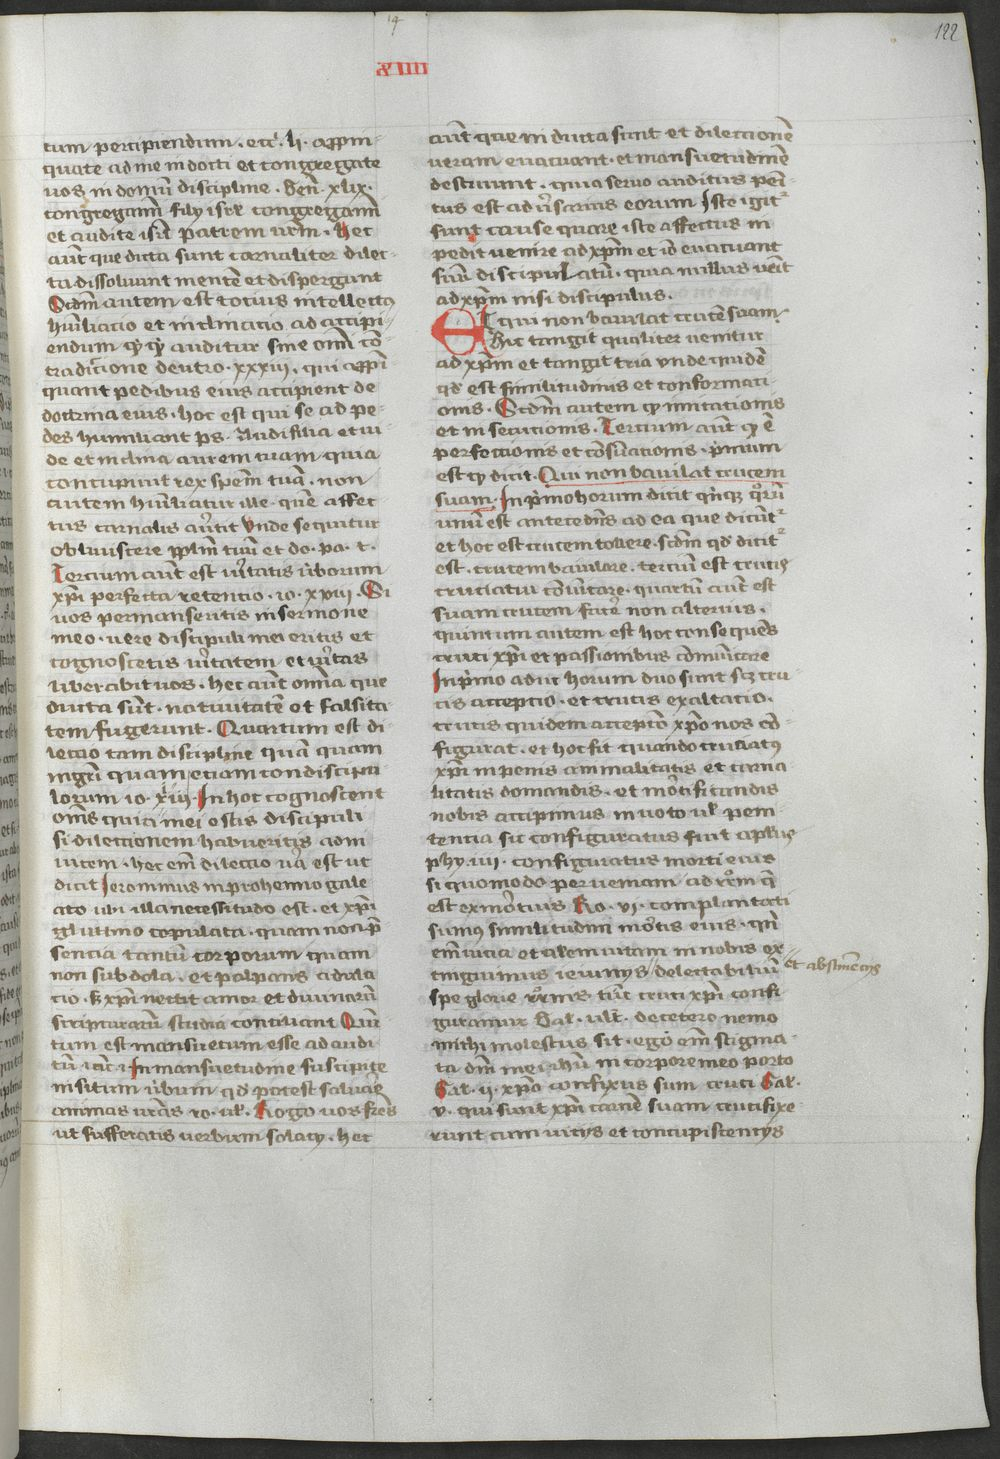 14
122
XIIII
tum percipiendum. ecci. li. appin
quate ad me indocti et congregate
uos in domu discipline. Gen. xlix.
congregamini filij isrl congregamini
et audite isrl patrem vrm. Hec
aut que dicta sunt carnaliter dilec
ta dissoluunt mentem et dispergunt
Scdm autem est tocius intellectus
humiliacio et inclinacio ad accipi
endum quicquid auditur sine omni con
tradictione deutro. xxxiij. qui appri
quant pedibus eius accipient de
doctrina eius. hoc est qui se ad pe
des humiliant ps. Audi filia et ui
de et inclina aurem tuam quia
concupiuit rex speciem tua. non
autem humiliatur ille que affec
tus carnalis auertit vnde sequitur
obliuiscere pplm tuu et do. pa. t.
Tercium aut est ueritatis uerborum
xpi perfecta retencio. io. xviij. Si
uos permanseritis in sermone
meo. uere discipuli mei eritis et
cognoscetis ueritatem et ueritas
liberabit uos. hec aut omia que
ducta sunt. natuitate et falsita
tem fugerunt. Quartum est di
lectio tam discipline quam quam
mgri quam eciam condiscipu
lorum io. xiij. In hoc cognoscent
oms quia mei estis discipuli
si dilectionem habueritis adin
uicem. hec em dilectio ua est ut
dicit Ieronimus in prohemio gale
ato ubi illa necessitudo est. et xpi
glutino copulata. quam non pre
sencia tantum corporum quam
non subdola. et palpans adula
cio. S xpi nectit amor et diuinaru
scripturaru studia conciliant Quin
tum est mansuetum esse ad audi
tu In mansuetudine suscipite
insitum uerbum qd potest saluare
animas uras ro. ul. Rogo uos fres
ut sufferatis uerbum solacij. hec
aut que in ducta sunt et dilectione
ueram euacuant. et mansuetudine
destruunt. quia seruo auditus pec
tus est ad uiscaris eorum Iste igit
sunt cause quare iste affectus in
pedit uenire ad xpm et io euacuant
suu discipulatu. quia nullus uenit
ad xpm nisi discipulus.
Et qui non baiulat crucem suam.
Hic tangit qualiter uenitur
ad xpm et tangit tria vnde quide
qd est similitudinis et conformaci
onis. Scdm autem quod imitacionis
et insecucionis. Tercium aut quod e
perfectionis et consumacionis. primum
est quod dicit. Qui non baiulat crucem
suam. In primo horum dicit quinque quoru
unu est antecedens ad ea que dicunt
et hoc est crucem tollere. scdm qd dicit
est. crucem baiulare. terciu est crucis
cruciatu comitare. quartu aut est
suam crucem ferre non alterius.
quintum autem est hoc consequens
cruci xpi et passionibus comunicare
In primo adhuc horum duo sunt scz cru
cis acceptio. et crucis exaltacio.
crucis quidem acceptio xpo nos con
figurat. et hoc fit quando cruciatus
xpi in penis animalitatis et carna
litatis domandis. et mortificandis
nobis accipimus in uoto uel peni
tencia sic configuratus fuit aplus
phy. iii. configuratus morti eius
si quomodo perueniam ad resurreccionem que
est ex mortuis Ro. vi. complantati
sumus similitudini mortis eius. quando
em uicia et carnem uitam in nobis ex
tinguimus ieiunijs // delectabiliu
// et abstinencijs
spe glorie resurreccionis. tunc cruci xpi confi
guramur Gal. ult. de cetero nemo
mihi molestus sit. ego em stigma
ta dni mei ihu in corpore meo porto
Gal. ij. xpo confixus sum cruci Gal.
v. qui sunt xpi carne suam crucifixe
runt cum vicijs et concupiscencijs